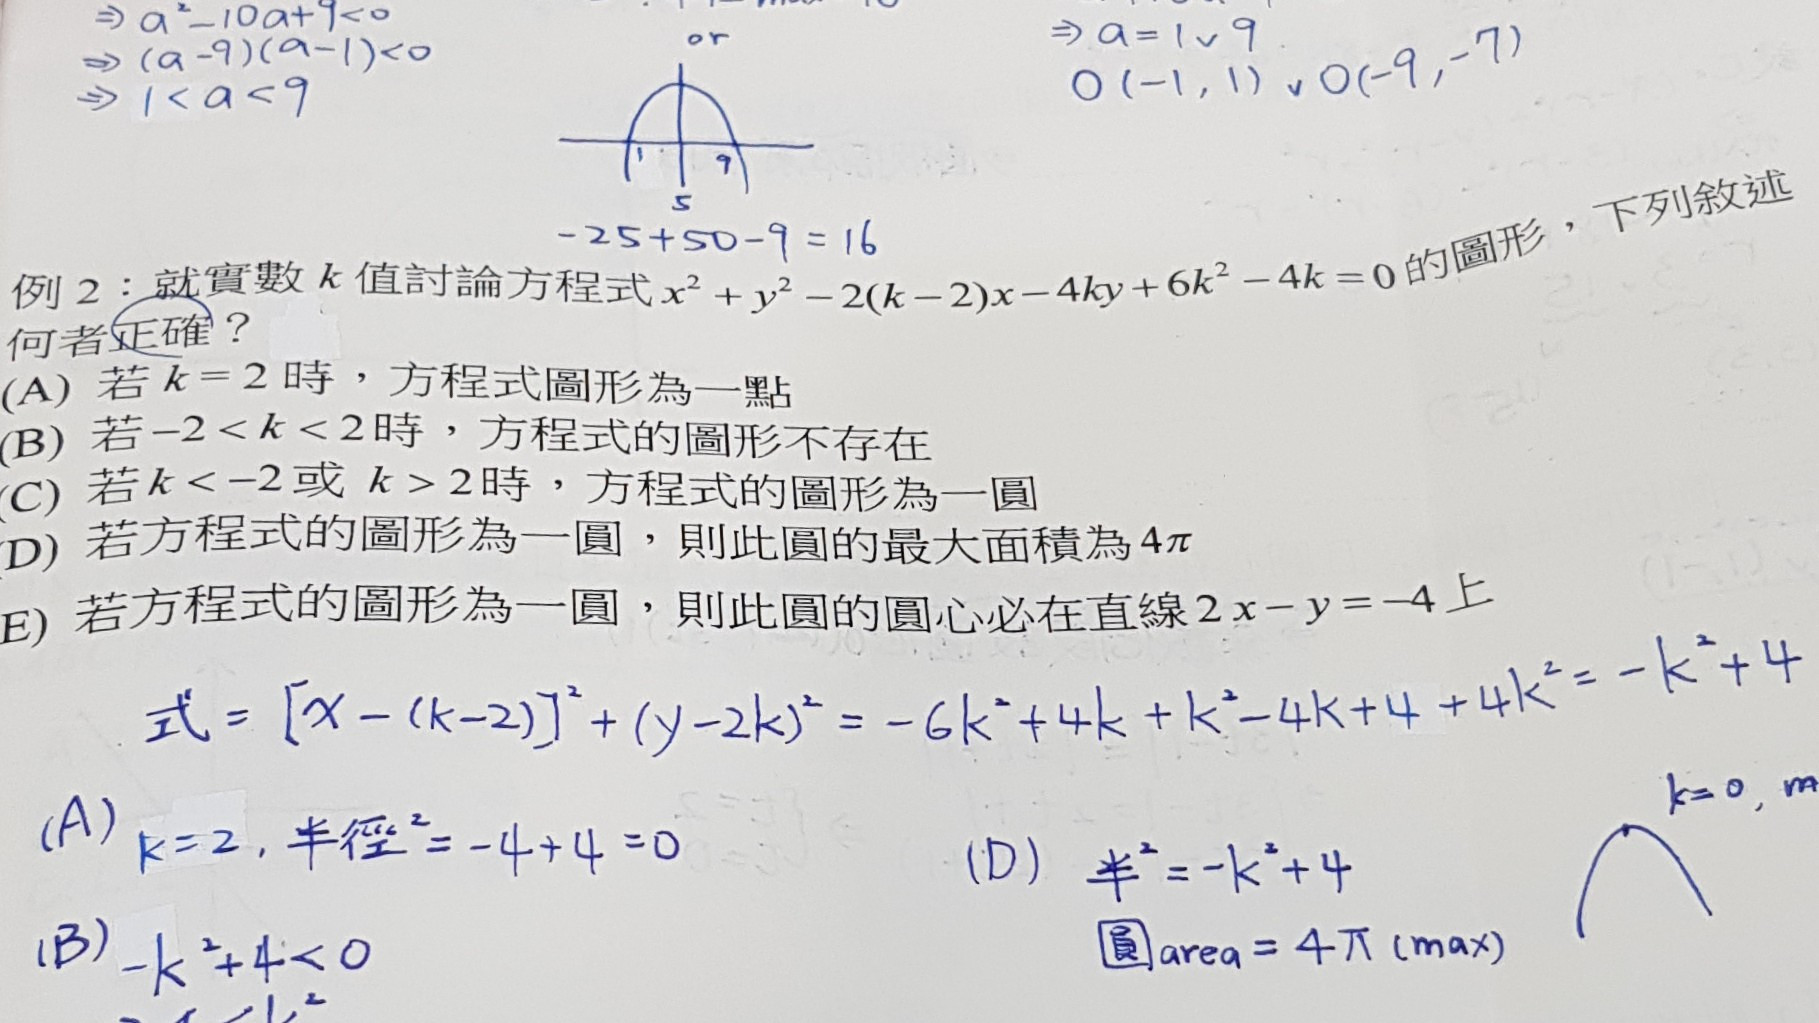 ⇒ a²-10a+9<0
⇒ (a-9)(a-1)<0
⇒ 1<a<9
or
1 9
5
-25+50-9=16
⇒ a=1∨9
O(-1,1)∨O(-9,-7)
例 2：就實數 k 值討論方程式 x² + y² − 2(k − 2)x − 4ky + 6k² − 4k = 0 的圖形，下列敘述
何者正確？
(A) 若 k = 2 時，方程式圖形為一點
(B) 若 −2 < k < 2 時，方程式的圖形不存在
(C) 若 k < −2 或 k > 2 時，方程式的圖形為一圓
(D) 若方程式的圖形為一圓，則此圓的最大面積為 4π
E) 若方程式的圖形為一圓，則此圓的圓心必在直線 2x − y = −4 上
式 = [x-(k-2)]²+(y-2k)² = -6k²+4k+k²-4k+4+4k² = -k²+4
(A) k=2, 半徑²=-4+4=0
(B) -k²+4<0
(D) 半²=-k²+4
圓area=4π (max)
k=0,